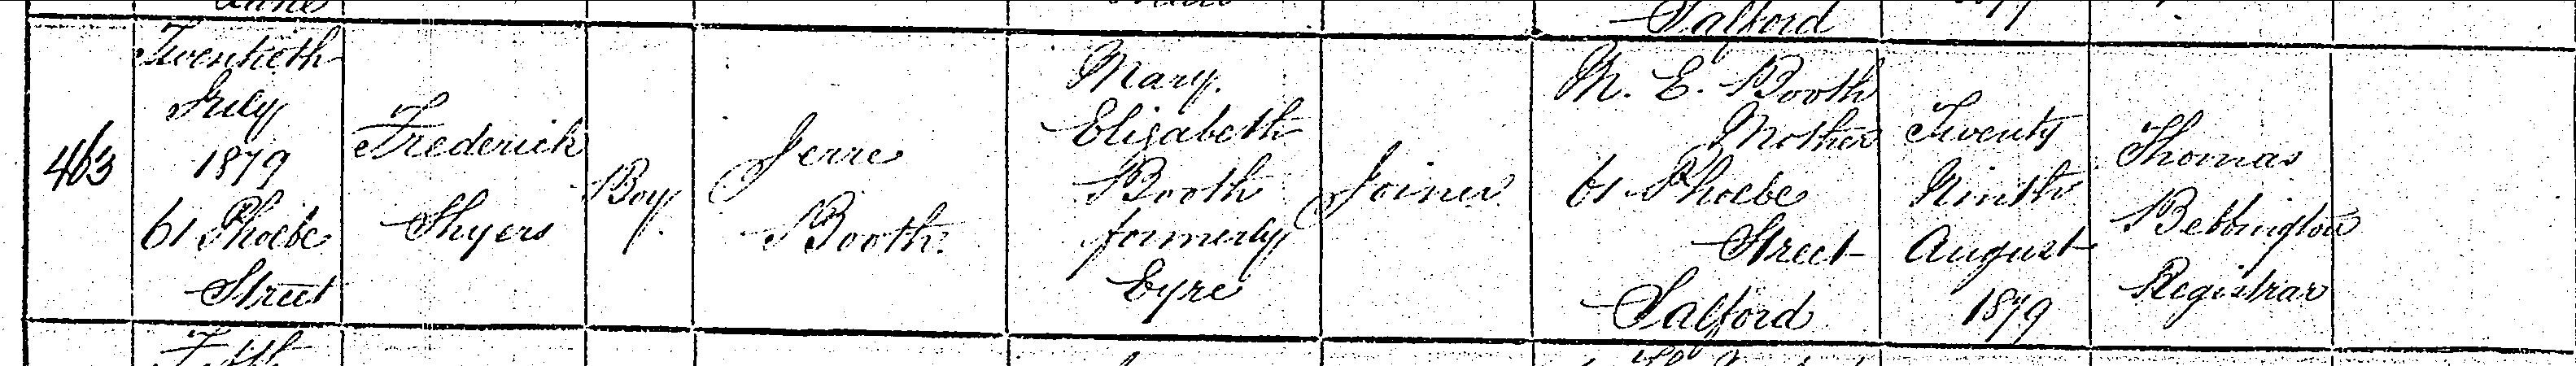 Salford
463
Twentieth
July
1879
61 Phoebe
Street
Frederick
Shyers
Boy
Jerre
Booth.
Mary.
Elizabeth
Booth
formerly
Eyre
Joiner
M. E. Booth
Mother
61 Phoebe
Street
Salford
Twenty
Ninth
August
1879
Thomas
Bebbington
Registrar